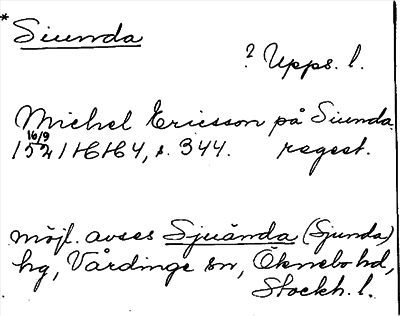 * Siunda
? Upps. l.
Michel Ericsson på Siunda.
16/9
152 1 HH 4, s. 344. regest.
möjl. avses Sjuända (Sjunda)
hg, Vårdinge sn, Öknebo hd,
Stockh. l.